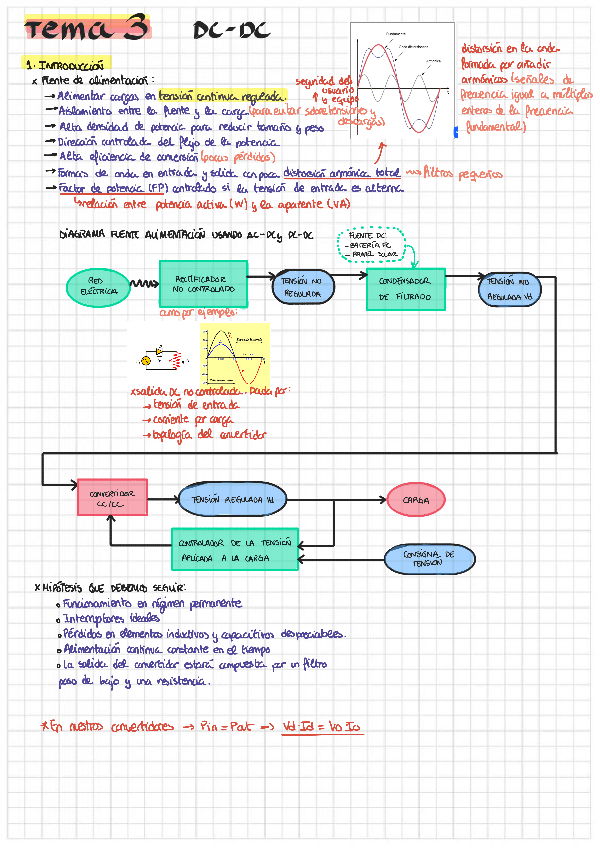 Tema 3 DC-DC
1. INTRODUCCIÓN
x Fuente de alimentación:
→ Alimentar cargas en tensión continua regulada.
→ Aislamiento entre la fuente y la carga (para evitar sobretensiones y descargas)
seguridad del usuario y equipo
→ Alta densidad de potencia para reducir tamaño y peso
→ Dirección controlada del flujo de la potencia
→ Alta eficiencia de conversión (pocas pérdidas)
→ Formas de onda en entrada y salida con poca distorsión armónica total → filtros pequeños
→ Factor de potencia (FP) controlado si la tensión de entrada es alterna
↳ relación entre potencia activa (W) y la aparente (VA)
distorsión en la onda
formada por añadir
armónicos (señales de
frecuencia igual a múltiplos
enteros de la frecuencia
fundamental)
DIAGRAMA FUENTE ALIMENTACIÓN USANDO AC-DC y DC-DC
FUENTE DC:
- PANEL SOLAR
RED
ELÉCTRICA
RECTIFICADOR
NO CONTROLADO
TENSIÓN NO
REGULADA
CONDENSADOR
DE FILTRADO
TENSIÓN NO
REGULADA Vd
como por ejemplo:
x salida DC no controlada. Dada por:
→ tensión de entrada
→ corriente por carga
→ topología del convertidor
CONVERTIDOR
CC/CC
TENSIÓN REGULADA Vd
CARGA
CONTROLADOR DE LA TENSIÓN
APLICADA A LA CARGA
CONSIGNA DE
TENSIÓN
x HIPÓTESIS QUE DEBEMOS SEGUIR:
• Funcionamiento en régimen permanente
• Interruptores ideales
• Pérdidas en elementos inductivos y capacitivos despreciables.
• Alimentación continua constante en el tiempo
• La salida del convertidor estará compuesta por un filtro
paso de bajo y una resistencia.
x En nuestros convertidores → Pin = Pout → Vd·Id = Vo·Io